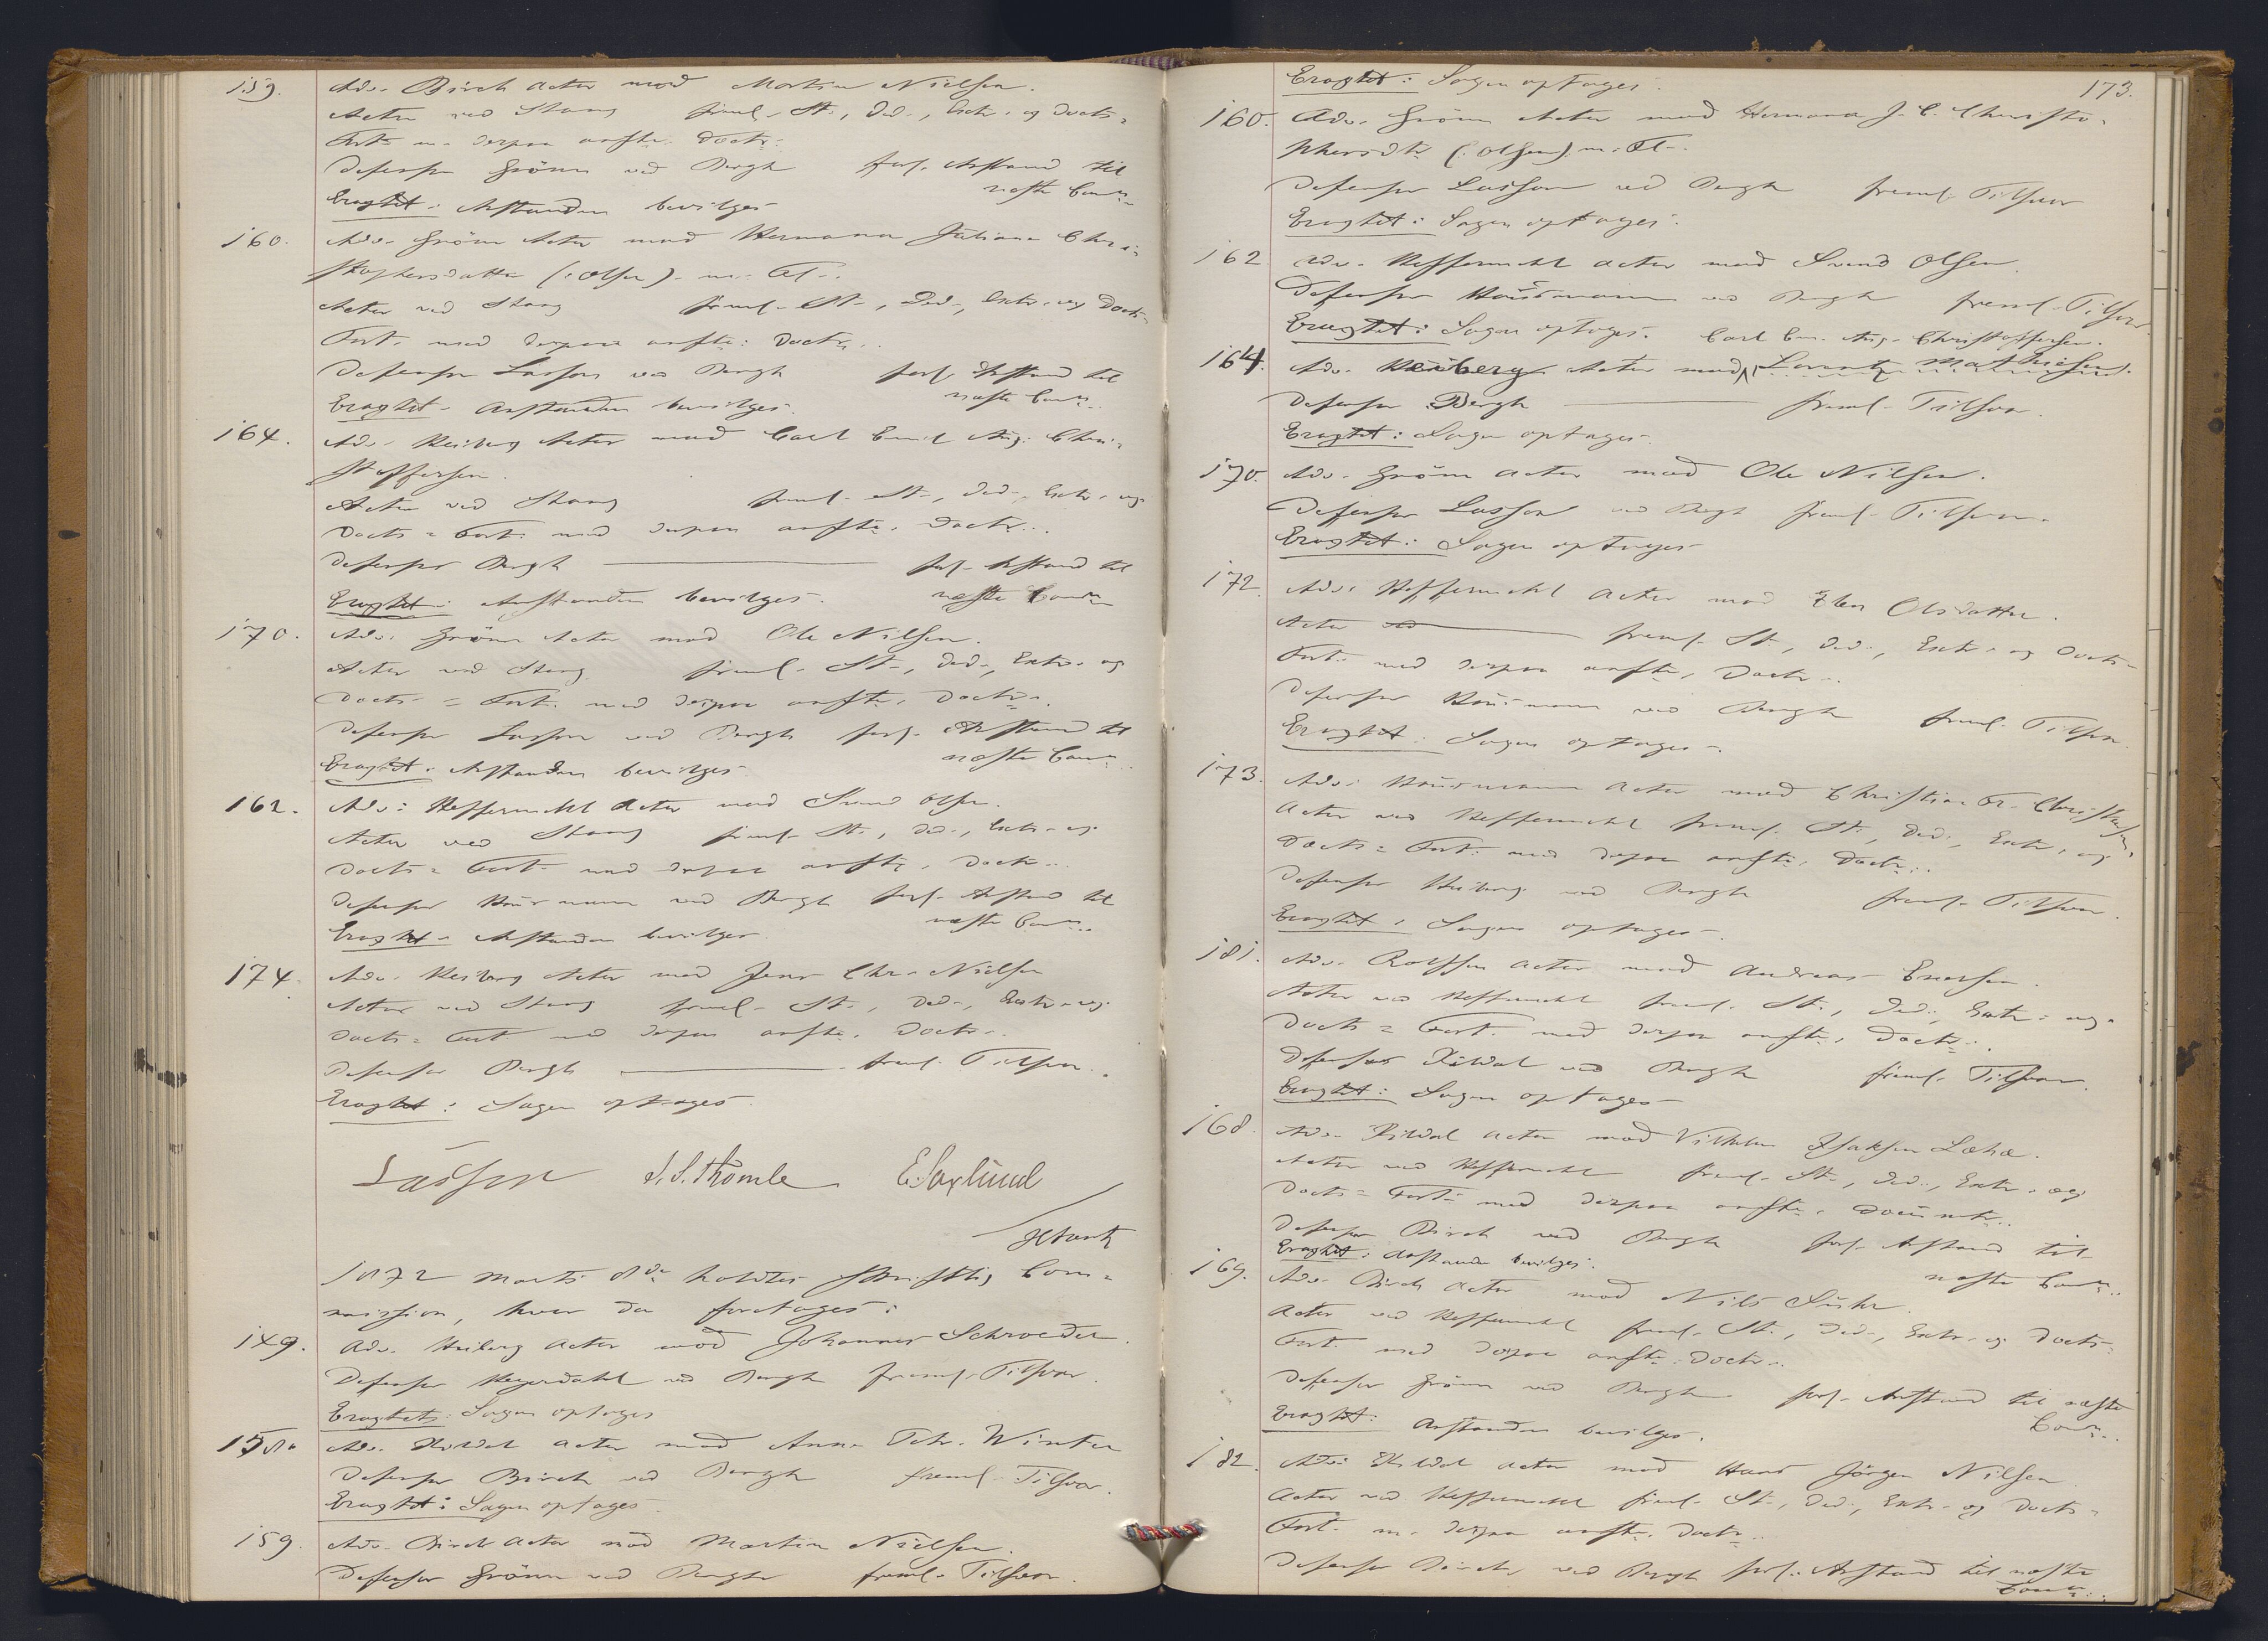 159. Adv. Birch Actor mod Martin Nielsen.
Actor ved Stang freml. St-, Ded-, Extr. og Docts=
Fort. m. derpaa anfte Doctr.
Defensor Grönn ved Bergh forl. Anstand til
næste Comn.
Eragtet: Anstanden bevilges
160. Adv. Grönn Actor mod Hermana Juliana Chri=
stophersdatter (: Olsen) m. Fl.
Actor ved Stang freml. St-, Ded-, Extr. og Docts=
Fort. med derpaa anfte: Doctr.
Defensor Lasson ved Bergh forl. Anstand til
næste Comn.
Eragtet. Anstanden bevilges.
164. Adv. Heiberg Actor mod Carl Emil Aug. Chri=
stoffersen.
Actor ved Stang freml. St-, Ded-, Extr. og
Docts= Fort. med derpaa anfte. Doctr.
Defensor Bergh forl. Anstand til
næste Comn
Eragtet: Anstanden bevilges.
170. Adv. Grönn Actor mod Ole Nilsen.
Actor ved Stang freml. St-, Ded-, Extr. og
Docts= Fort. med derpaa anfte. Doctr.
Defensor Lasson ved Bergh forl. Anstand til
næste Comn.
Eragtet: Anstanden bevilges
162. Adv: Heffermehl Actor mod Svend Olsen.
Actor ved Stang freml. St., Ded-, Extr. og
Docts= Fort. med derpaa anfte. Doctr.
Defensor Hausmann ved Bergh forl. Anstand til
næste Comn.
Eragtet. Anstanden bevilges
174. Adv. Heiberg Actor mod Jens Chr. Nielsen
Actor ved Stang freml. St., Ded-, Extr. og
Docts= Fort med derpaa anfte. Doctr.
Defensor Bergh freml. Tilsvar.
Eragtet: Sagen optages.
Lasson J. S. Thomle E. Saxlund
1872 Marts 8de holdtes skriftlig Com=
mission, hvor da foretages:
149. Adv. Heiberg Actor mod Johannes Schroeder.
Defensor Heyerdahl ved Bergh freml. Tilsvar.
Eragtet: Sagen optages
Adv. Hildal Actor mod Anne Winter
Defensor Birch ved Bergh freml. Tilsvar.
Eragtet: Sagen optages.
159. Adv. Birch Actor mod Martin Nielsen.
Defensor Grönn ved Bergh freml. Tilsvar.
173.
Eragtet: Sagen optages.
160. Adv. Grönn Actor mod Hermana J. C. Christo=
phersdtr (: Olsen) m. Fl.
Defensor Lasson ved Bergh freml. Tilsvar
Eragtet: Sagen optages.
162 Adv. Heffermehl Actor mod Svend Olsen.
Defensor Hausmann ved Bergh freml. Tilsvar.
Eragtet: Sagen optages. Carl Em. Aug. Christoffersen.
164. Adv. Heiberg Actor mod Lorentz Mathisen.
Defensor Bergh freml. Tilsvar.
Eragtet: Sagen optages.
170. Adv. Grönn Actor mod Ole Nilsen.
Defensor Lasson ved Bergh freml. Tilsvar.
Eragtet: Sagen optages
172. Adv. Heffermehl Actor mod Elen Olsdatter.
Actor freml. St-, Ded-, Extr. og Docts=
Fort. med derpaa anfte, Doctr.
Defensor Hausmann ved Bergh freml. Tilsvar.
Eragtet: Sagen optages.
173. Adv. Hausmann Actor mod Christian Fr. Christensen.
Actor ved Heffermehl freml. St., Ded-, Extr. og
Docts= Fort. med derpaa anfte. Doctr.
Defensor Heiberg ved Bergh freml. Tilsvar.
Eragtet: Sagen optages.
181. Adv. Rolfsen Actor mod Andreas Enersen.
Actor ved Heffermehl freml. St-, Ded-, Extr. og
Docts= Fort. med derpaa anfte. Doctr.
Defensor Hildal ved Bergh freml. Tilsvar.
Eragtet: Sagen optages
168. Adv. Hildal Actor mod Vilhelm Isaksen
Actor ved Heffermehl freml. St-, Ded-, Extr. og
Docts= Fort. med derpaa anfte.
Defensor Birch ved Bergh forl. Anstand til
næste Comn.
Eragtet: Anstanden bevilges.
169. Adv. Birch Actor mod Nils
Actor ved Heffermehl freml. St-, Ded-, Extr. og Docts=
Fort. med derpaa anfte. Doctr.
Defensor Grönn ved Bergh forl. Anstand til næste
Comn.
Eragtet: Anstanden bevilges.
182. Adv. Hildal Actor mod Hans Jörgen Nilsen
Actor ved Heffermehl freml. St-, Ded-, Extr. og Docts=
Fort. m. derpaa anfte. Doctr.
Defensor Birch ved Bergh forl. Anstand til næste
Comn.